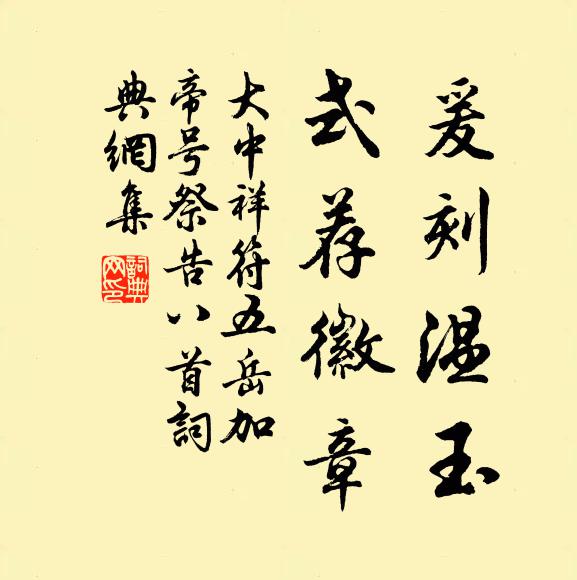 爰刻温玉
式荐徽章
大中祥符五岳加
帝号祭告八首詞
典網集
詞典網印